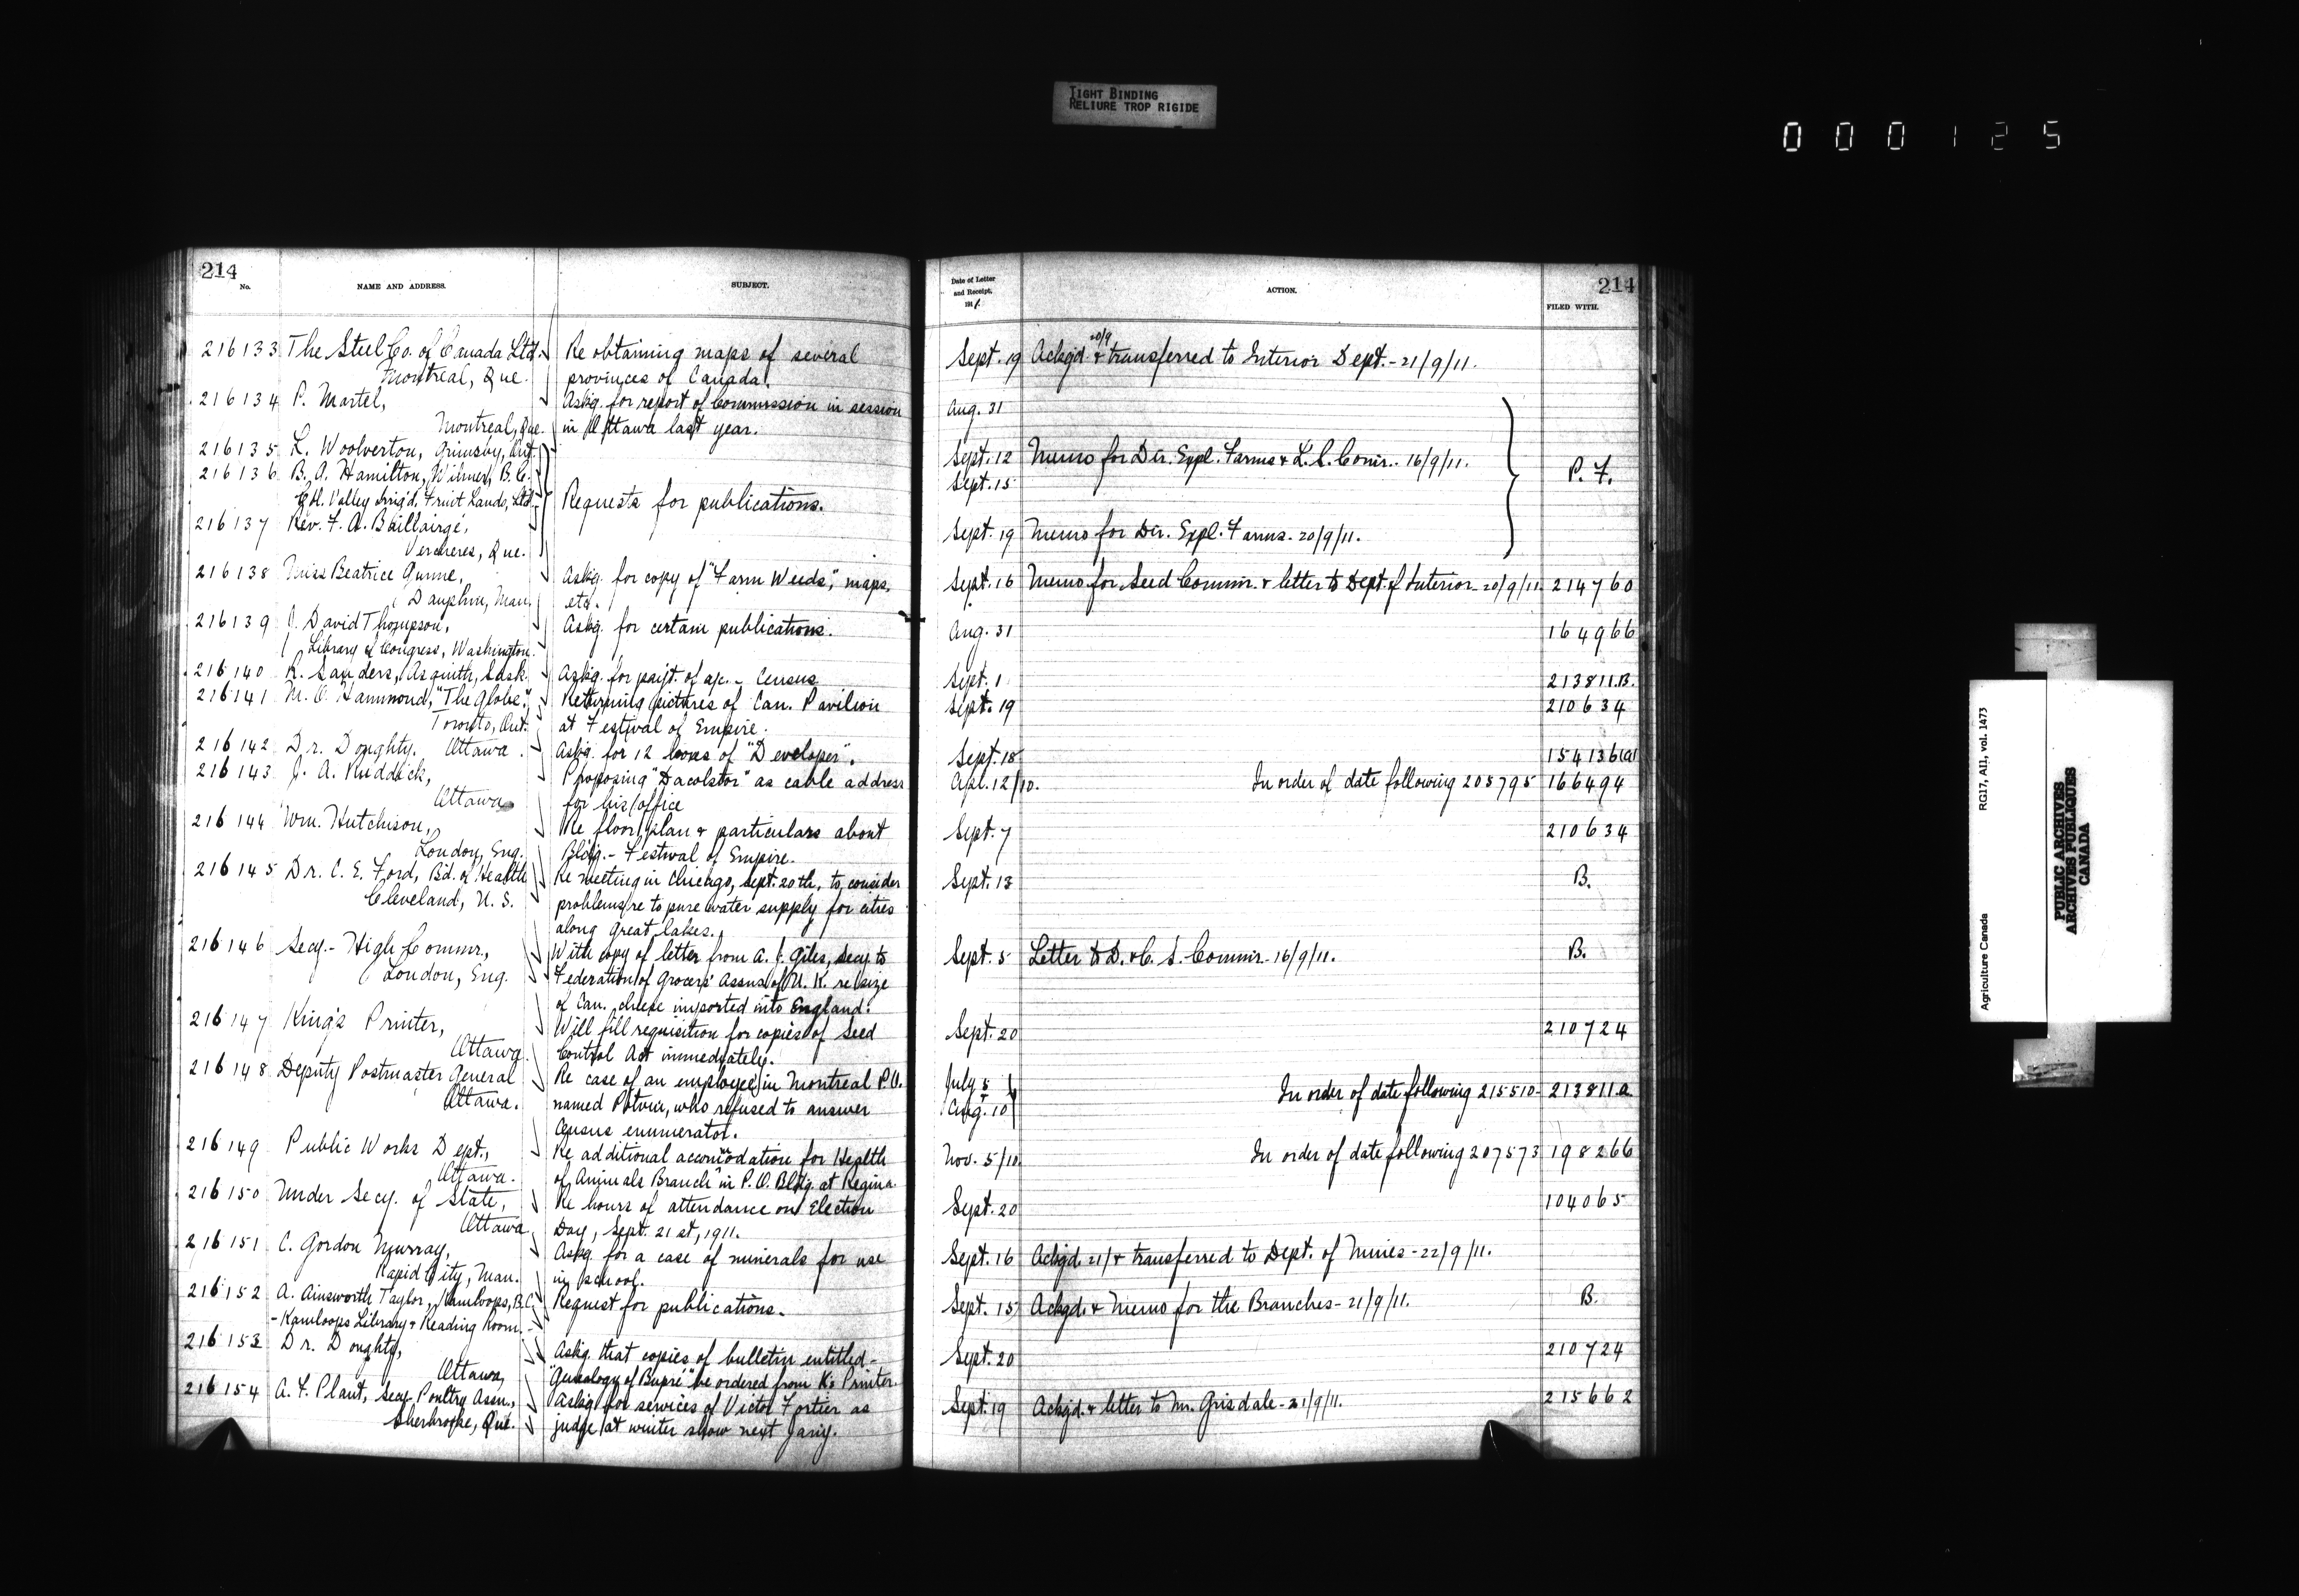 TIGHT BINDING
RELIURE TROP RIGIDE
000125
214
No.
NAME AND ADDRESS.
SUBJECT.
216133 The Steel Co. of Canada Ltd. Re obtaining maps of several
Montreal, Que. provinces of Canada.
216134 P. Martel, Askg. for report of Commission in session
Montreal, Que. in Ottawa last year.
216135 L. Woolverton, Grimsby, Ont.
216136 B. A. Hamilton, Wilmer, B.C.
Col. Valley Irrig'd. Fruit Lands, Ltd. Requests for publications.
216137 Rev. F. A. Baillairgé,
Vercheres, Que.
216138 Miss Beatrice Gunne, Askg. for copy of "Farm Weeds," maps,
Dauphin, Man. etc.
216139 J. David Thompson, Askg. for certain publications.
Library of Congress, Washington.
216140 R. Sanders, Asquith, Sask. Askg. for payt. of a/c. - Census
216141 M. O. Hammond, "The Globe," Returning pictures of Can. Pavilion
Toronto, Ont. at Festival of Empire.
216142 Dr. Doughty. Ottawa. Askg. for 12 boxes of "Developer".
216143 J. A. Ruddick, Proposing "Dacolstor" as cable address
Ottawa for his office
216144 Wm. Hutchison, Re floor plan & particulars about
London, Eng. Bldg. - Festival of Empire.
216145 Dr. C. E. Ford, Bd. of Health Re meeting in Chicago, Sept. 20th, to consider
Cleveland, U.S. problems re to pure water supply for cities
along Great Lakes.
216146 Secy. - High Commr., With copy of letter from A. J. Giles, Secy. to
London, Eng. Federation of Grocers' Assns. of U.K. re size
of Can. cheese imported into England.
216147 King's Printer, Will fill requisition for copies of Seed
Ottawa. Control Act immediately.
216148 Deputy Postmaster General Re case of an employee in Montreal P.O.
Ottawa. named Potvin, who refused to answer
Census enumerator.
216149 Public Works Dept., Re additional accommodation for Health
Ottawa. of Animals Branch in P.O. Bldg. at Regina
216150 Under Secy. of State, Re hours of attendance on Election
Ottawa Day, Sept. 21st, 1911.
216151 C. Gordon Murray, Askg. for a case of minerals for use
Rapid City, Man. in school.
216152 A. Ainsworth Taylor, Kamloops, B.C. Request for publications.
- Kamloops Library & Reading Room. -
216153 Dr. Doughty, Askg. that copies of bulletin entitled -
Ottawa, "Genealogy of Dupré" be ordered from K's Printer.
216154 A. F. Plant, Secy. Poultry Assn., Askg. for services of Victor Fortier as
Sherbrooke, Que. judge at winter show next Jany.
Date of Letter
and Receipt.
1911.
ACTION.
214
FILED WITH.
20/9
Sept. 19 Ackgd. & transferred to Interior Dept. - 21/9/11.
Aug. 31
Sept. 12 Memo for Dir. Expl. Farms & L.S. Comr. 16/9/11.
Sept. 15 P. F.
Sept. 19 Memo for Dir. Expl. Farms - 20/9/11.
Sept. 16 Memo for Seed Commr. & letter to Dept. of Interior - 20/9/11. 214760
Aug. 31 164966
Sept. 1 213811.B.
Sept. 19 210634
Sept. 18 154136(a)
Apl. 12/10. In order of date following 205795 166494
Sept. 7 210634
Sept. 13 B.
Sept. 5 Letter to D. & C. S. Commr. - 16/9/11. B.
Sept. 20 210724
July 5 &
Aug. 10 In order of date following 215510 - 213811a
Nov. 5/10. In order of date following 207573 198266
Sept. 20 104065
Sept. 16 Ackgd. 21/ & transferred to Dept. of Mines - 22/9/11.
Sept. 15 Ackgd. & Memo for the Branches - 21/9/11. B.
Sept. 20 210724
Sept. 19 Ackgd. & letter to Mr. Grisdale - 21/9/11. 215662
Agriculture Canada RG17, AII, vol. 1473
PUBLIC ARCHIVES
ARCHIVES PUBLIQUES
CANADA